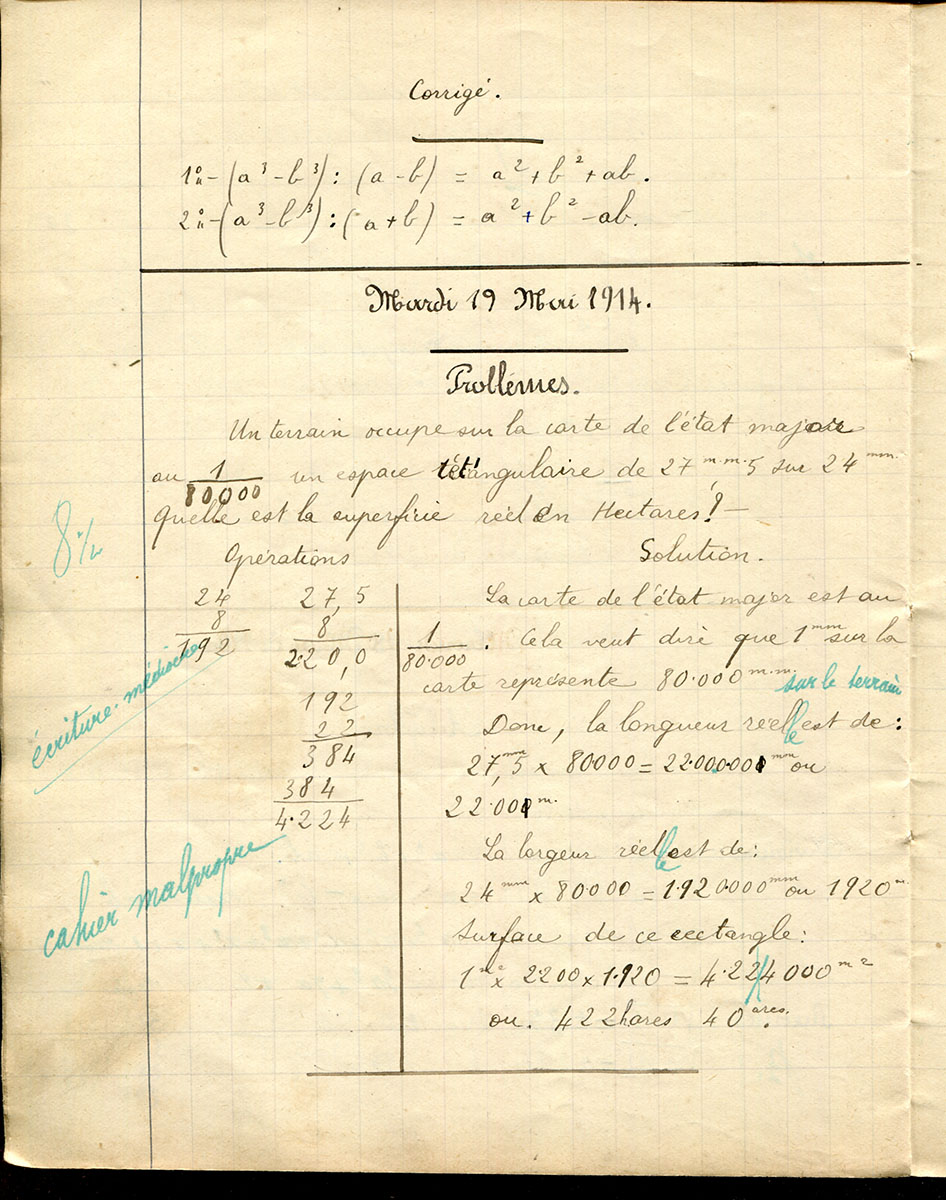 Corrigé.
1º - (a³ - b³) : (a - b) = a² + b² + ab.
2º - (a³ - b³) : (a + b) = a² + b² - ab.
Mardi 19 Mai 1914.
Problèmes.
Un terrain occupe sur la carte de l'état major
au 1/80000 un espace réctangulaire de 27 m.m. 5 sur 24 mm.
Quelle est la superficie réel en Hectares? -
8 1/2
Opérations
24
8
192
27,5
8
220,0
192
22
384
384
4.224
écriture médiocre
cahier malpropre
Solution.
La carte de l'état major est au
1/80.000 . Cela veut dire que 1 mm sur la
carte représente 80.000 m.m. sur le terrain
Donc, la longueur réelle est de :
27,5 mm x 80000 = 22.000.000 mm ou
22.000 m.
La largeur réelle est de :
24 mm x 80.000 = 1.920.000 mm ou 1920 m.
Surface de ce rectangle :
1 m² x 2200 x 1.920 = 4.224000 m²
ou. 422hares 40 ares.